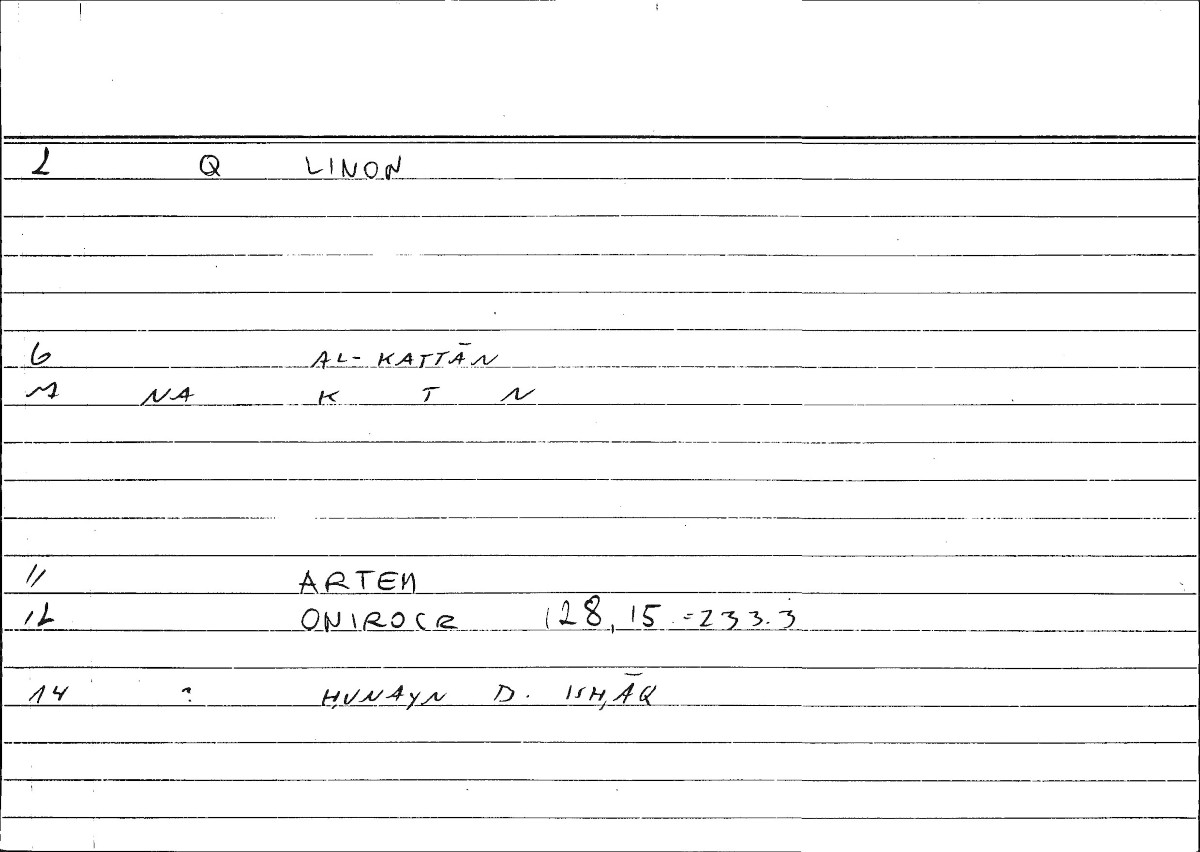 2 Q LINON
6 AL-KATTĀN
M NA K T N
11 ARTEM
12 ONIROCR 128,15.=233.3
14 ? ḤUNAYN B. ISḤĀQ